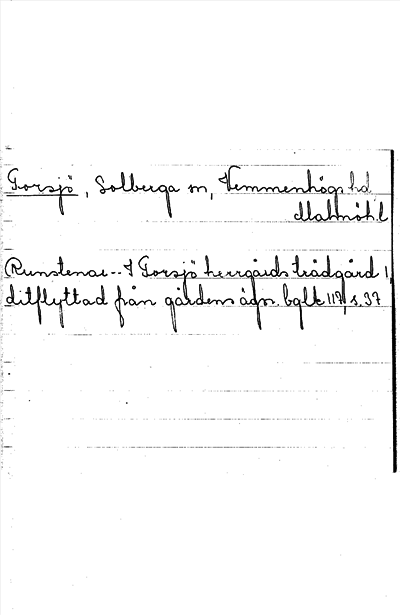 Torsjö, Solberga sn, Vemmenhögs hd
Malmöh. l
Runstenar -- I Torsjö herrgårds trädgård 1,
ditflyttad från gårdens ägor. bqlk 117, s. 37